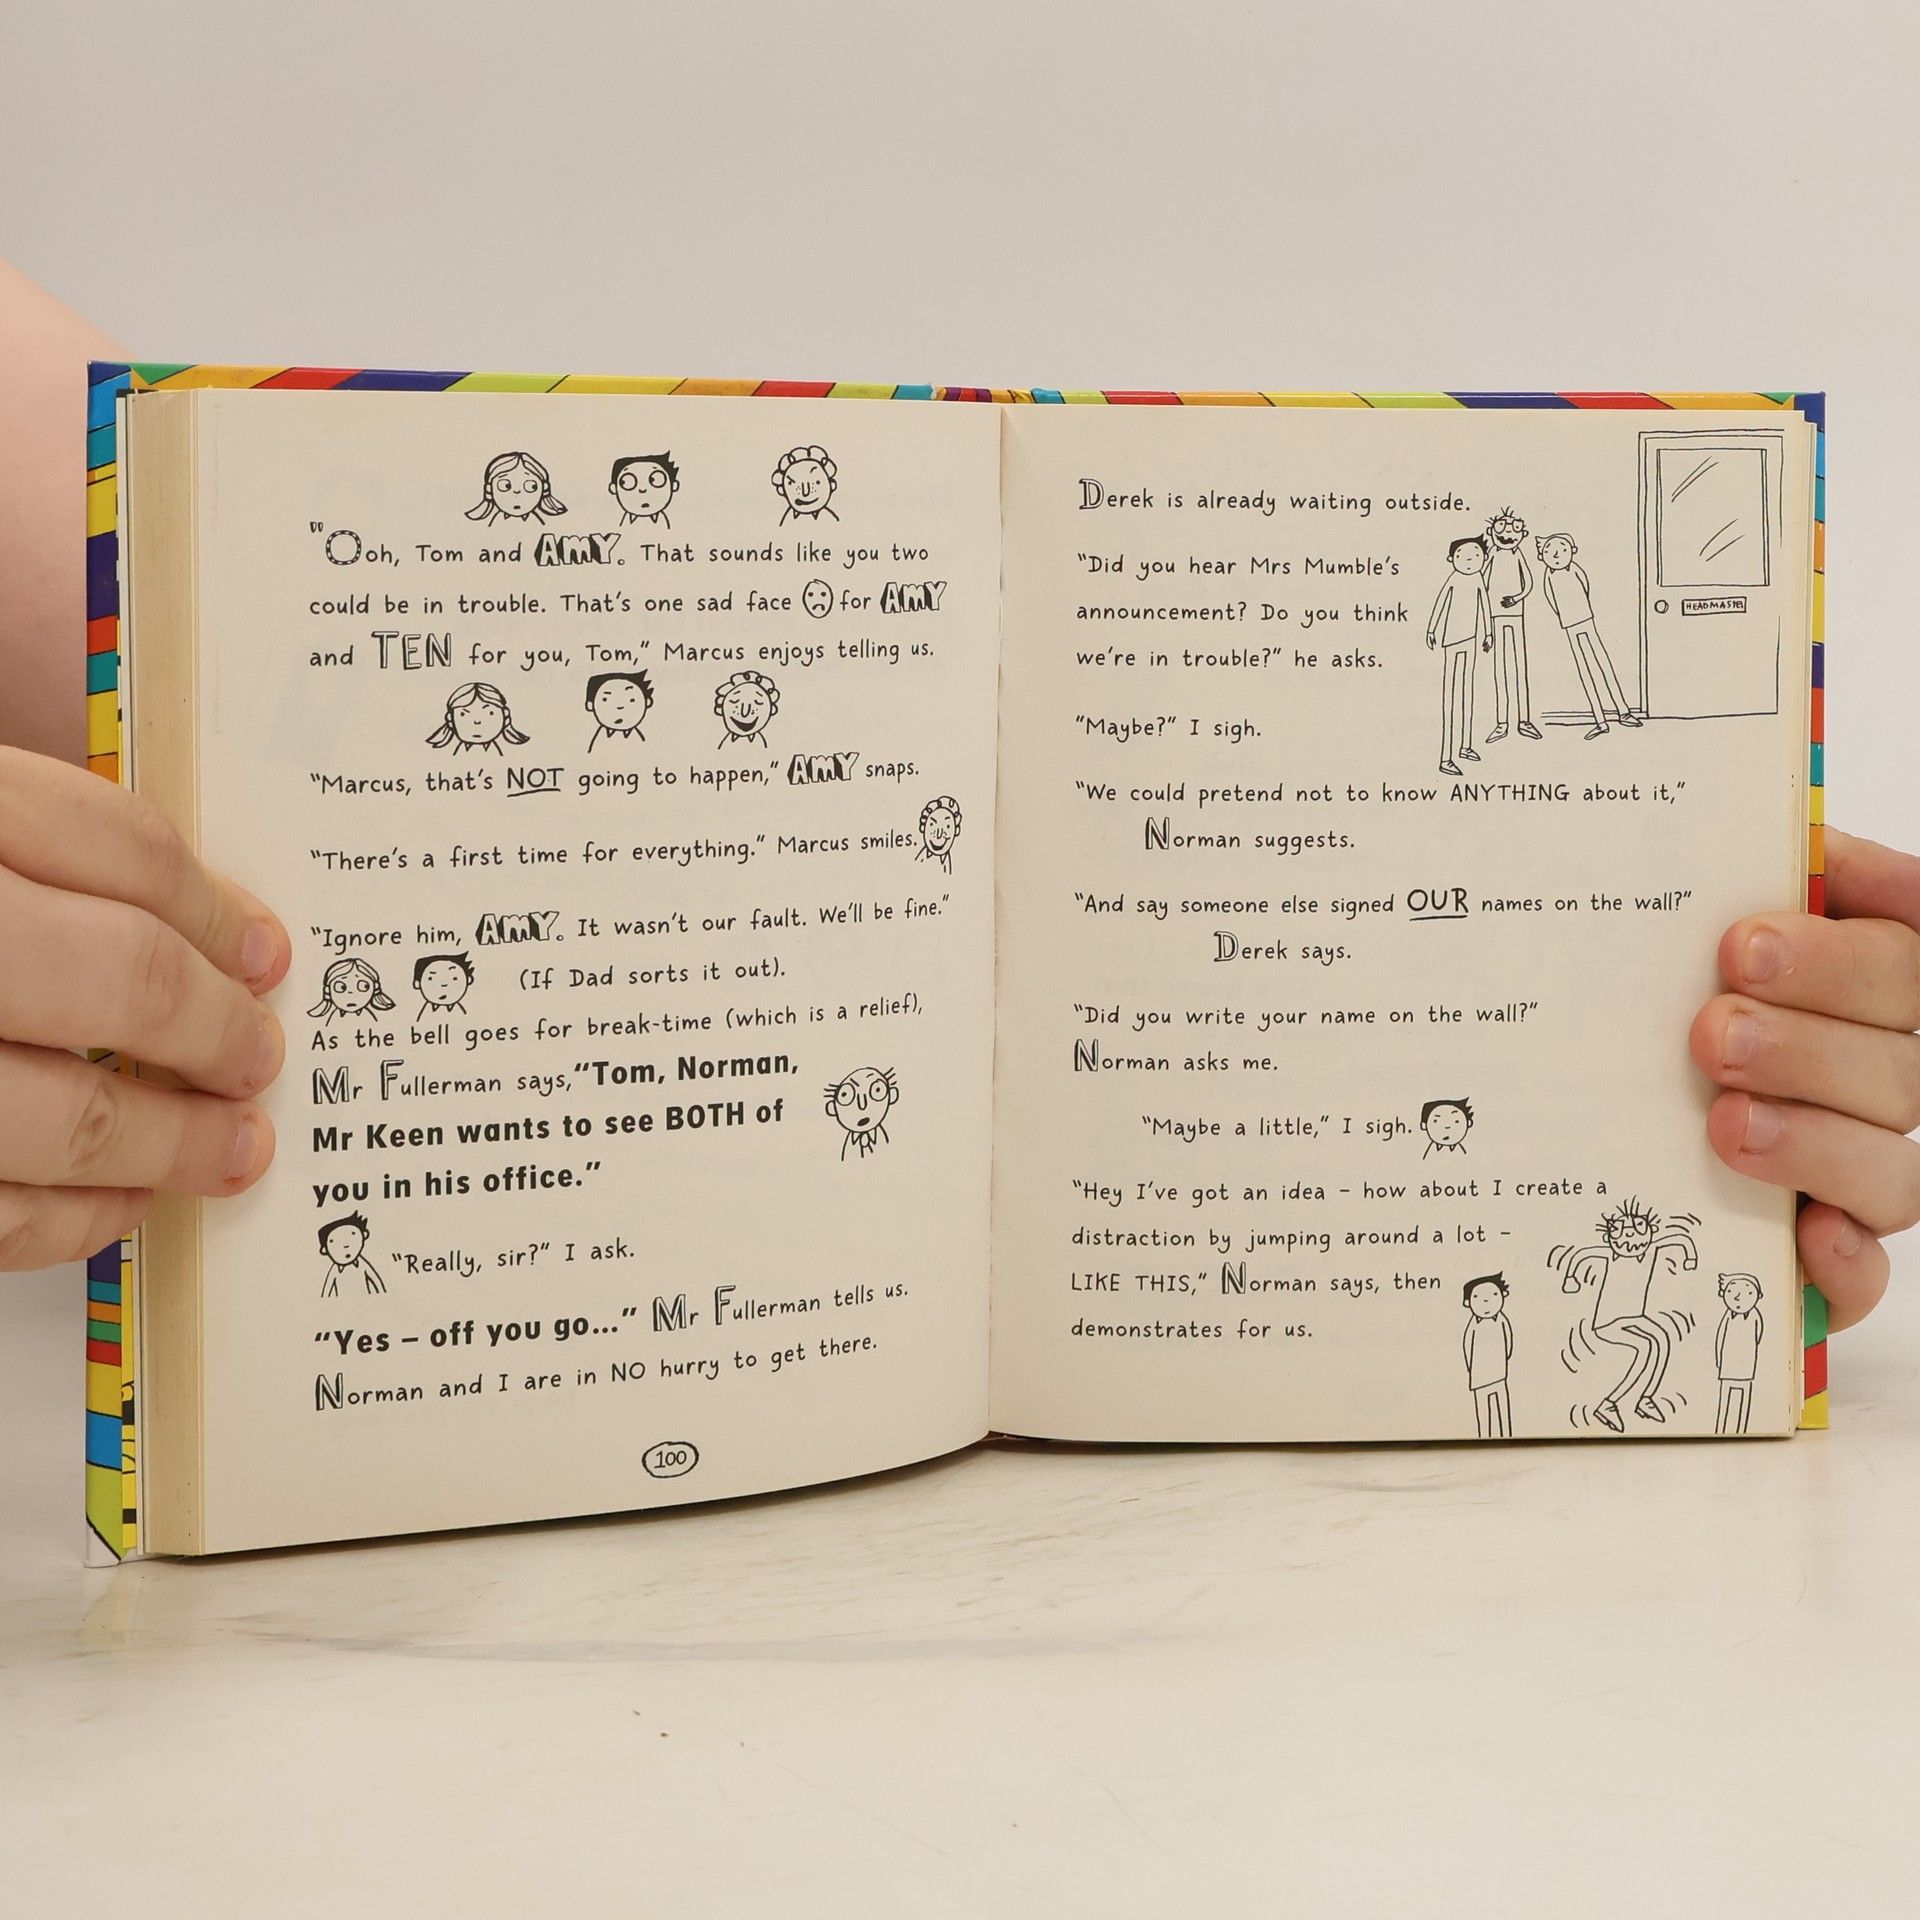 "Ooh, Tom and AMY. That sounds like you two
could be in trouble. That's one sad face for AMY
and TEN for you, Tom," Marcus enjoys telling us.
"Marcus, that's NOT going to happen," AMY snaps.
"There's a first time for everything." Marcus smiles.
"Ignore him, AMY. It wasn't our fault. We'll be fine."
(If Dad sorts it out).
As the bell goes for break-time (which is a relief),
Mr Fullerman says, "Tom, Norman,
Mr Keen wants to see BOTH of
you in his office."
"Really, sir?" I ask.
"Yes – off you go..." Mr Fullerman tells us.
Norman and I are in NO hurry to get there.
100
Derek is already waiting outside.
"Did you hear Mrs Mumble's
announcement? Do you think
we're in trouble?" he asks.
HEADMASTER
"Maybe?" I sigh.
"We could pretend not to know ANYTHING about it,"
Norman suggests.
"And say someone else signed OUR names on the wall?"
Derek says.
"Did you write your name on the wall?"
Norman asks me.
"Maybe a little," I sigh.
"Hey I've got an idea – how about I create a
distraction by jumping around a lot –
LIKE THIS," Norman says, then
demonstrates for us.